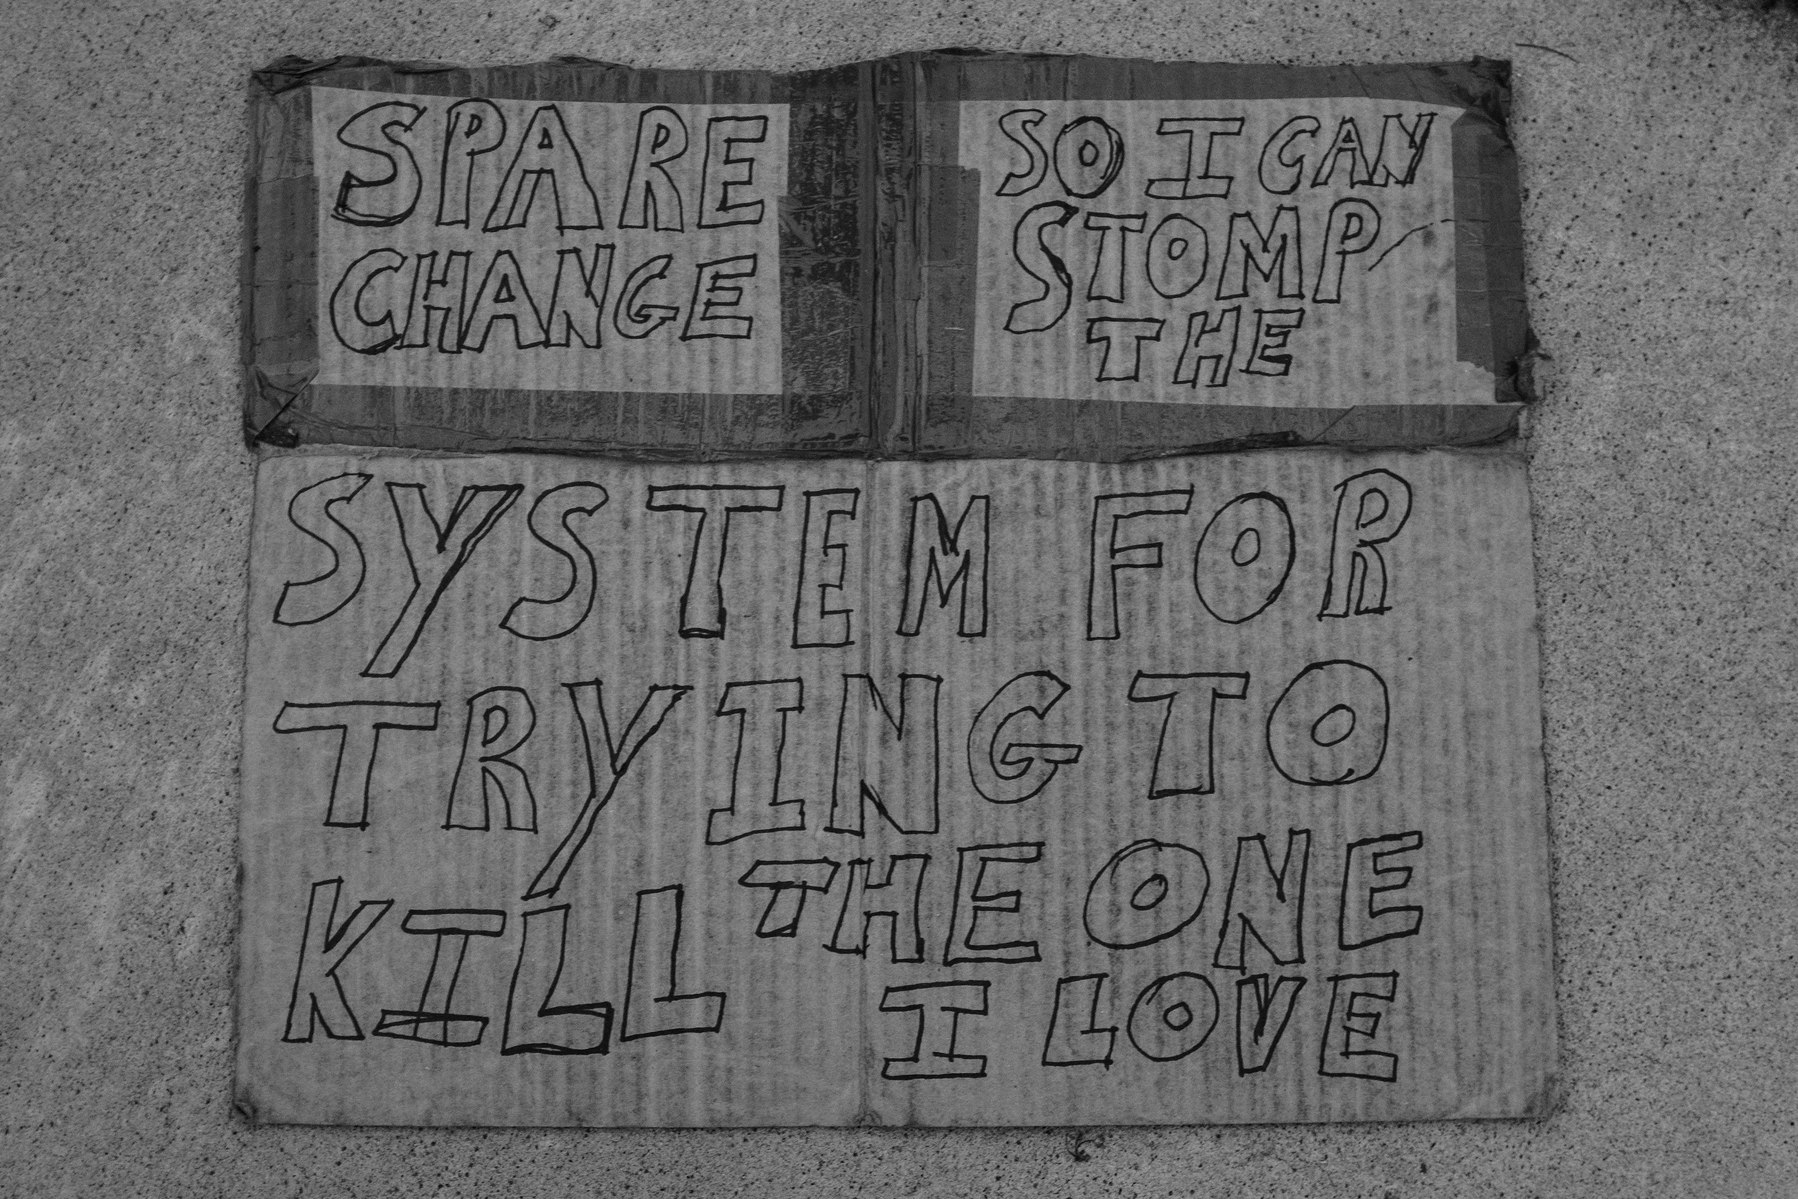 SPARE
CHANGE
SO I CAN
STOMP
THE
SYSTEM FOR
TRYING TO
KILL THE ONE
I LOVE